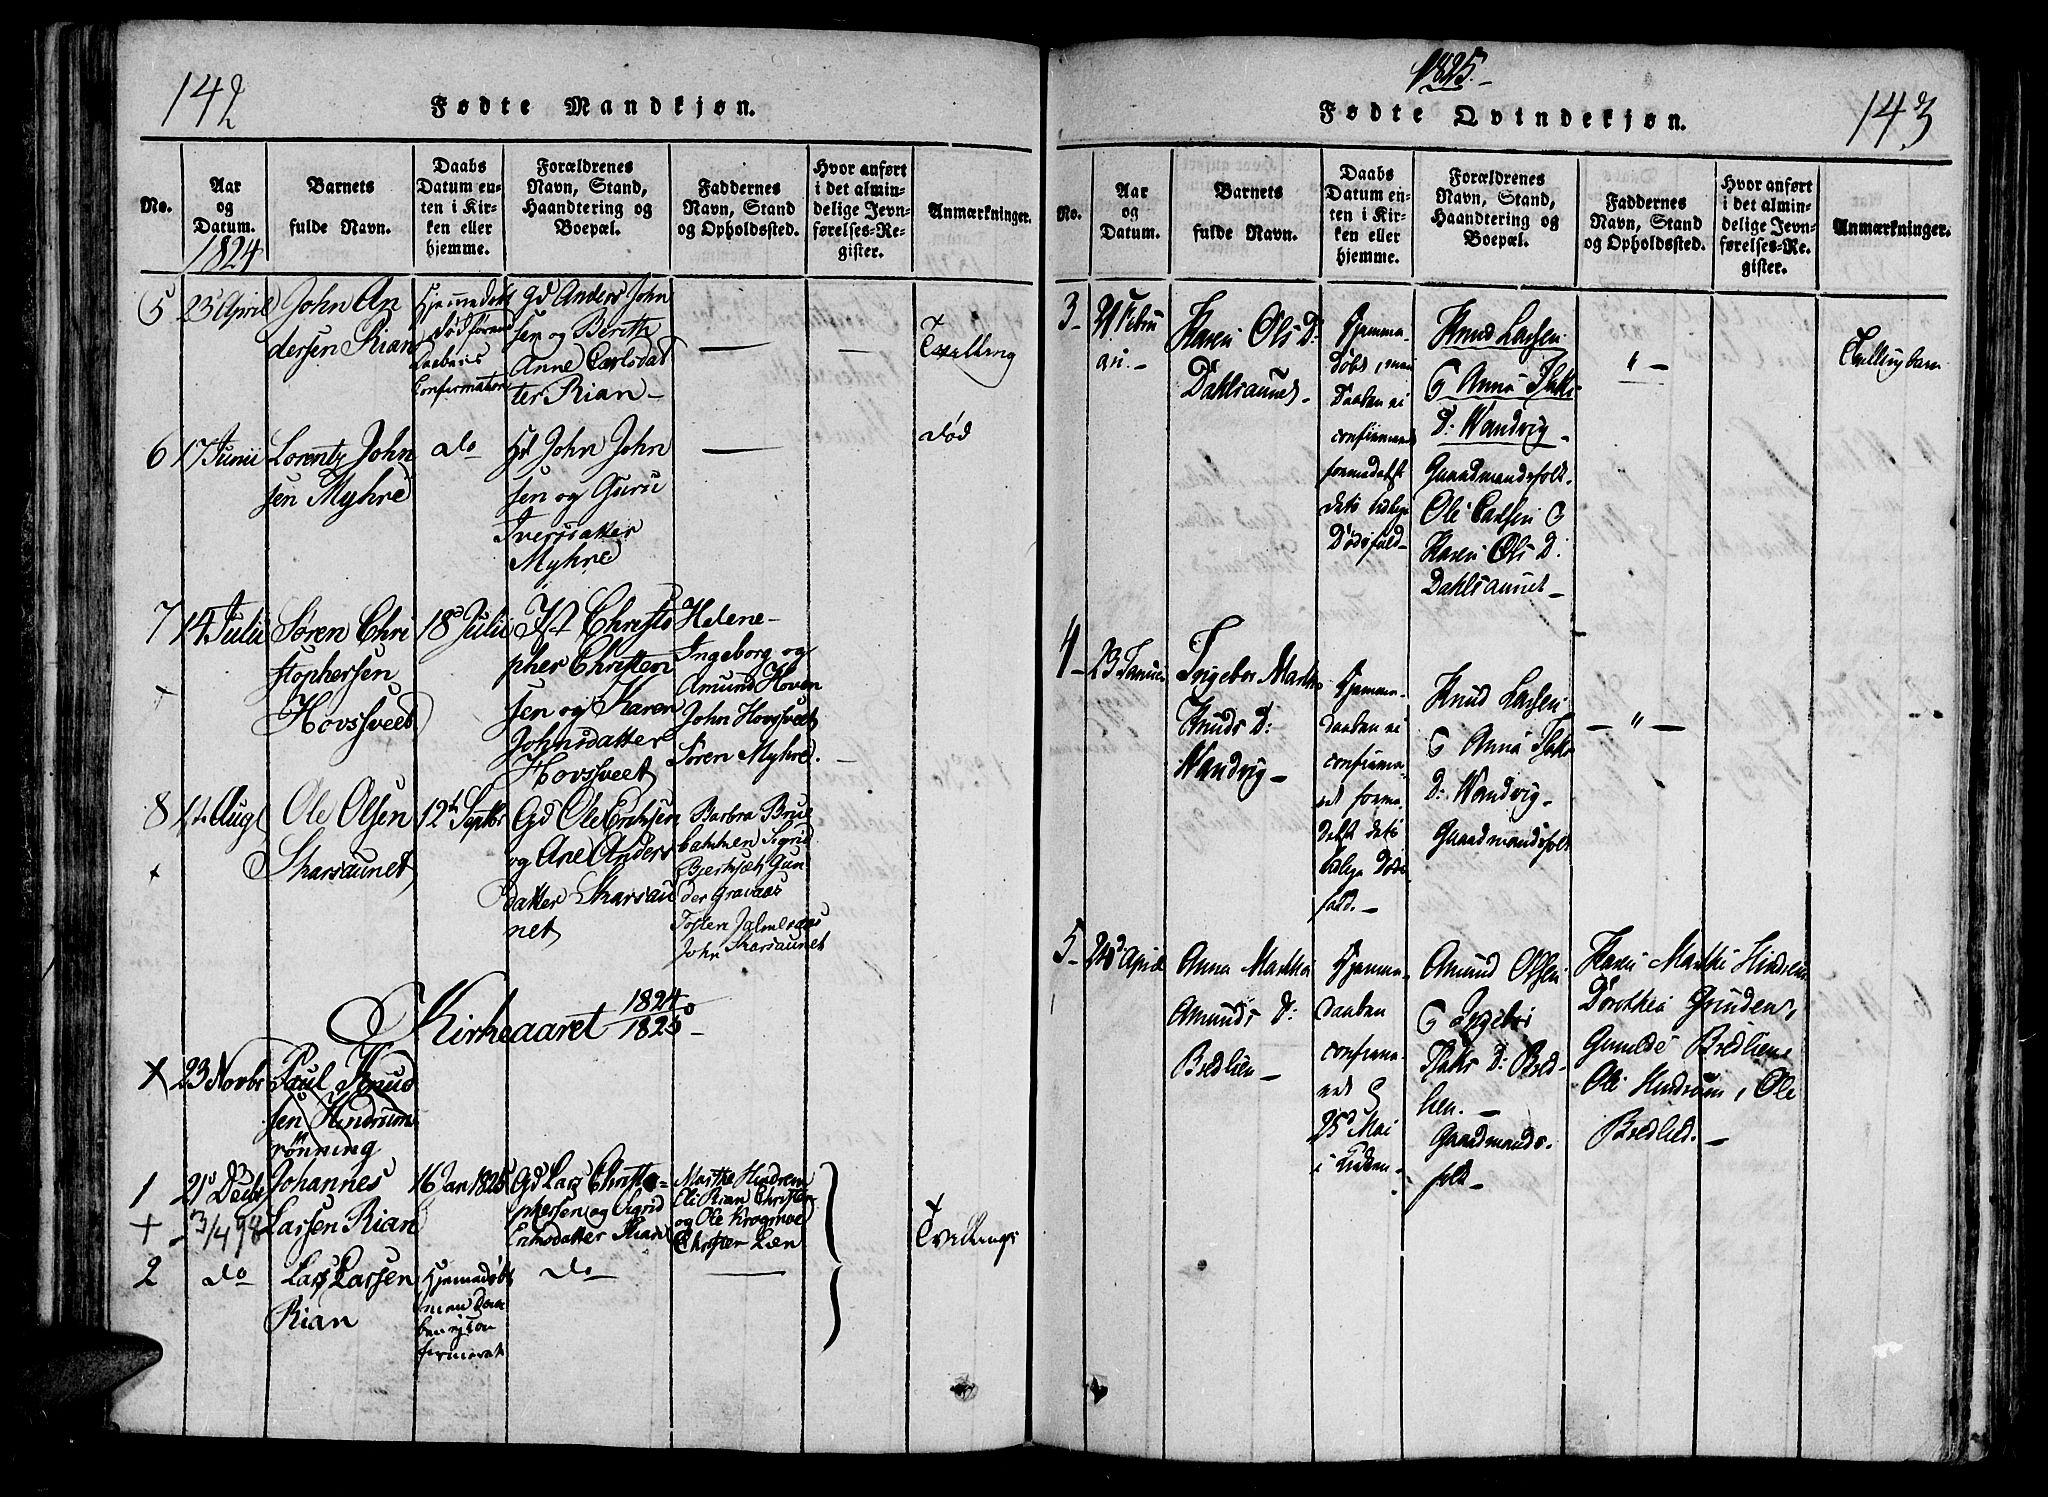 142
Fødte Mandkjøn.
No.
Aar
og
Datum.
1824
Barnets
fulde Navn.
Daabs
Datum en-
ten i Kir-
ken eller
hjemme.
Forældrenes
Navn, Stand,
Haandtering og
Boepæl.
Faddernes
Navn, Stand
og Opholdssted.
Hvor anført
i det almin-
delige Jevn-
førelses-Re-
gister.
Anmærkninger.
5
23 April
John An
dersen Rian
Hjemmedøbt
død førend
Daabens
Confirmation
Gd Anders John
sen og Berith
Anne Carlsdat
ter Rian
—
—
Tvilling
6
17 Junii
Lorentz John
sen Myhre
do
John John
sen og Guru
Iversdatter
Myhre
—
død
7
14 Julii
Søren Chri
stophersen
Hovsveet
18 Julii
Christo
pher Christen
sen og Karen
Johnsdatter
Hovsveet
Helene
Ingeborg og
Amund Hoven
John Hovsveet
Søren Myhre.
8
Aug
Ole Olsen
Skarsaunet
12te Septbr
Gd Ole Eriksen
og Ane Anders
datter Skarsau
net
Barbra Brue
bakken Sigrid
Bjerksæt Gun
der Gravaas
Tosten
John Skarsaunet
Kirkeaaret 1824/1825
23 Novbr
Paul Knud
sen Hindrum
rönning
1
21 Decbr
Johannes
Larsen Rian
16 Jan 1825
Gd Lars Christo-
phersen og Sigrid
Eriksdatter Rian
Marthe Hindrem
Eli Rian Christen
og Ole Krogmoe
Christen Læn
Tvillinger
2
do
Lars Larsen
Rian
Hjemedøbt
men Daa
ben ej Con
firmeret
do
—
1825.
Fødte Qvindekjøn.
143
No.
Aar
og
Datum.
Barnets
fulde Navn.
Daabs
Datum en-
ten i Kir-
ken eller
hjemme.
Forældrenes
Navn, Stand,
Haandtering og
Boepæl.
Faddernes
Navn, Stand
og Opholdssted.
Hvor anført
i det almin-
delige Jevn-
førelses-Re-
gister.
Anmærkninger.
3
21 Febru
ari
Karen Ols D:
Dahlsaunet
Hjemme
døbt, men
Daaben ei
confirmeret
formedelst
dets tidlige
Dødsfald
Knud Larsen
Anna
D: Wandvig
Gaardmandsfolk.
Ole Carlsen
Karen Ols D.
Dahlsaunet
" —
Tvillingbarn
4
23 Januar
Ingebor Martha
Knuds D:
Wandvig
Hjemme-
daaben ei
confirme-
ret forme-
delst dets
tidlige Døds-
fald.
Knud Larsen
Anna
D: Wandvig
Gaardmandsfolk
— " —
5
24d April
Anna Martha
Amunds D:
Bredlien
Hjemme-
daaben
confirme-
ret
25d Mai
i Kirken
Amund Olsen
Ingebor
D: Bred-
lien.
Gaardmands-
folk
Karen Marthe Hindrem
Dorothea Grinden,
Gunilde Bredlien
Ole Hindrum, Ole
Bredlied.